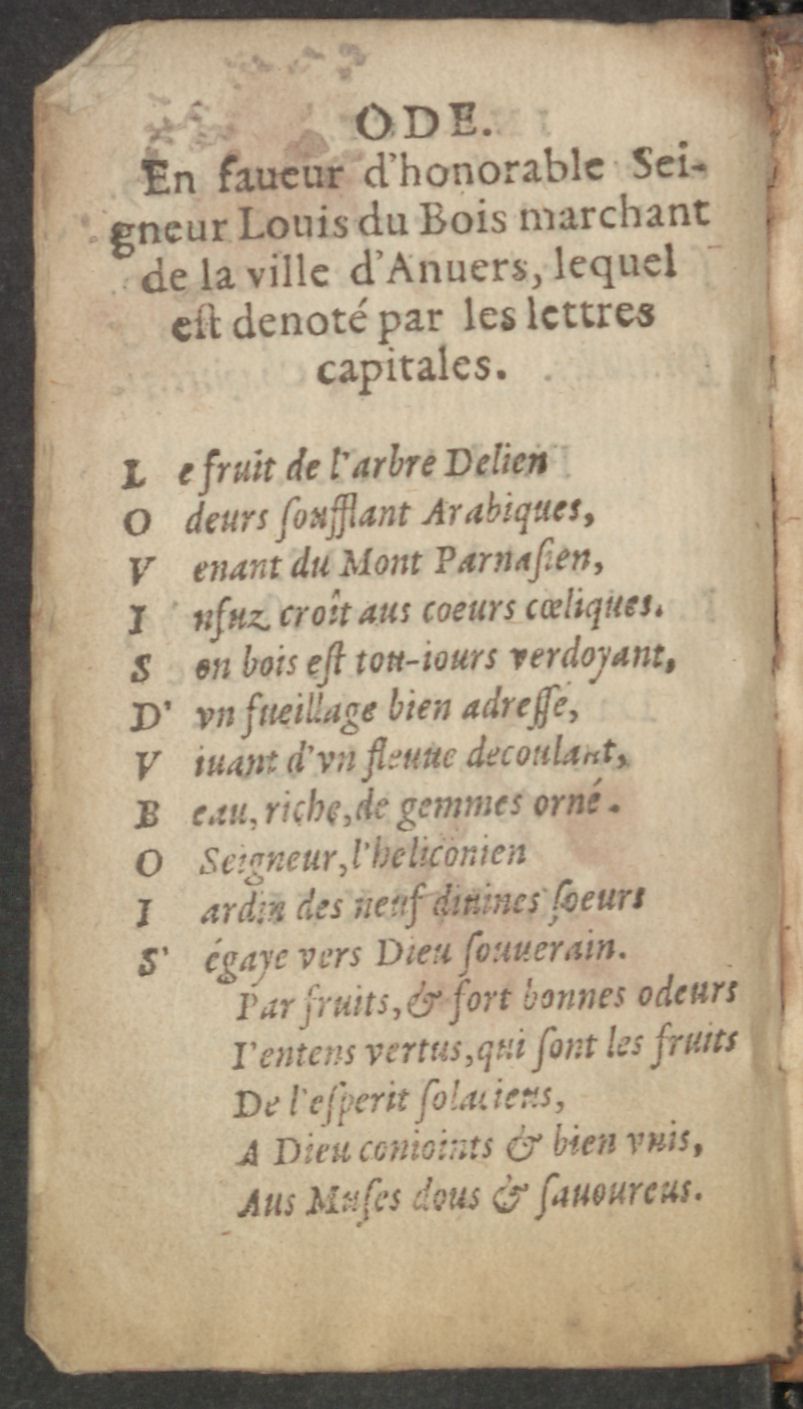 ODE.
En faueur d'honorable Sei-
gneur Louis du Bois marchant
de la ville d'Anuers, lequel
eſt denoté par les lettres
capitales.
L e fruit de l'arbre Delien
O deurs ſoufflant Arabiques,
V enant du Mont Parnaſien,
I nfuz croît aus coeurs cœliques.
S on bois eſt tou-iours verdoyant,
D' vn fueillage bien adreſſé,
V iuant d'vn fleuue decoulant,
B eau, riche, de gemmes orné.
O Seigneur, l'heliconien
I ardin des neuf diuines ſoeurs
S' égaye vers Dieu ſouuerain.
Par fruits, & fort bonnes odeurs
I'entens vertus, qui ſont les fruits
De l'eſperit ſolaciens,
A Dieu conioints & bien vnis,
Aus Muſes dous & ſauoureus.